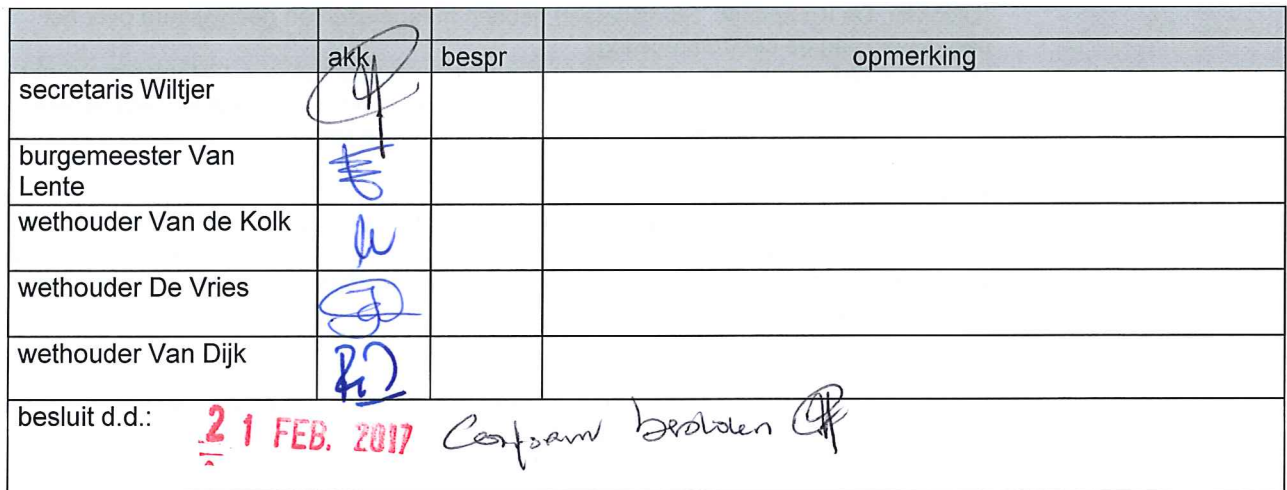 akk bespr opmerking
secretaris Wiltjer
burgemeester Van
Lente
wethouder Van de Kolk
wethouder De Vries
wethouder Van Dijk
besluit d.d.: 21 FEB. 2017 Conform besloten